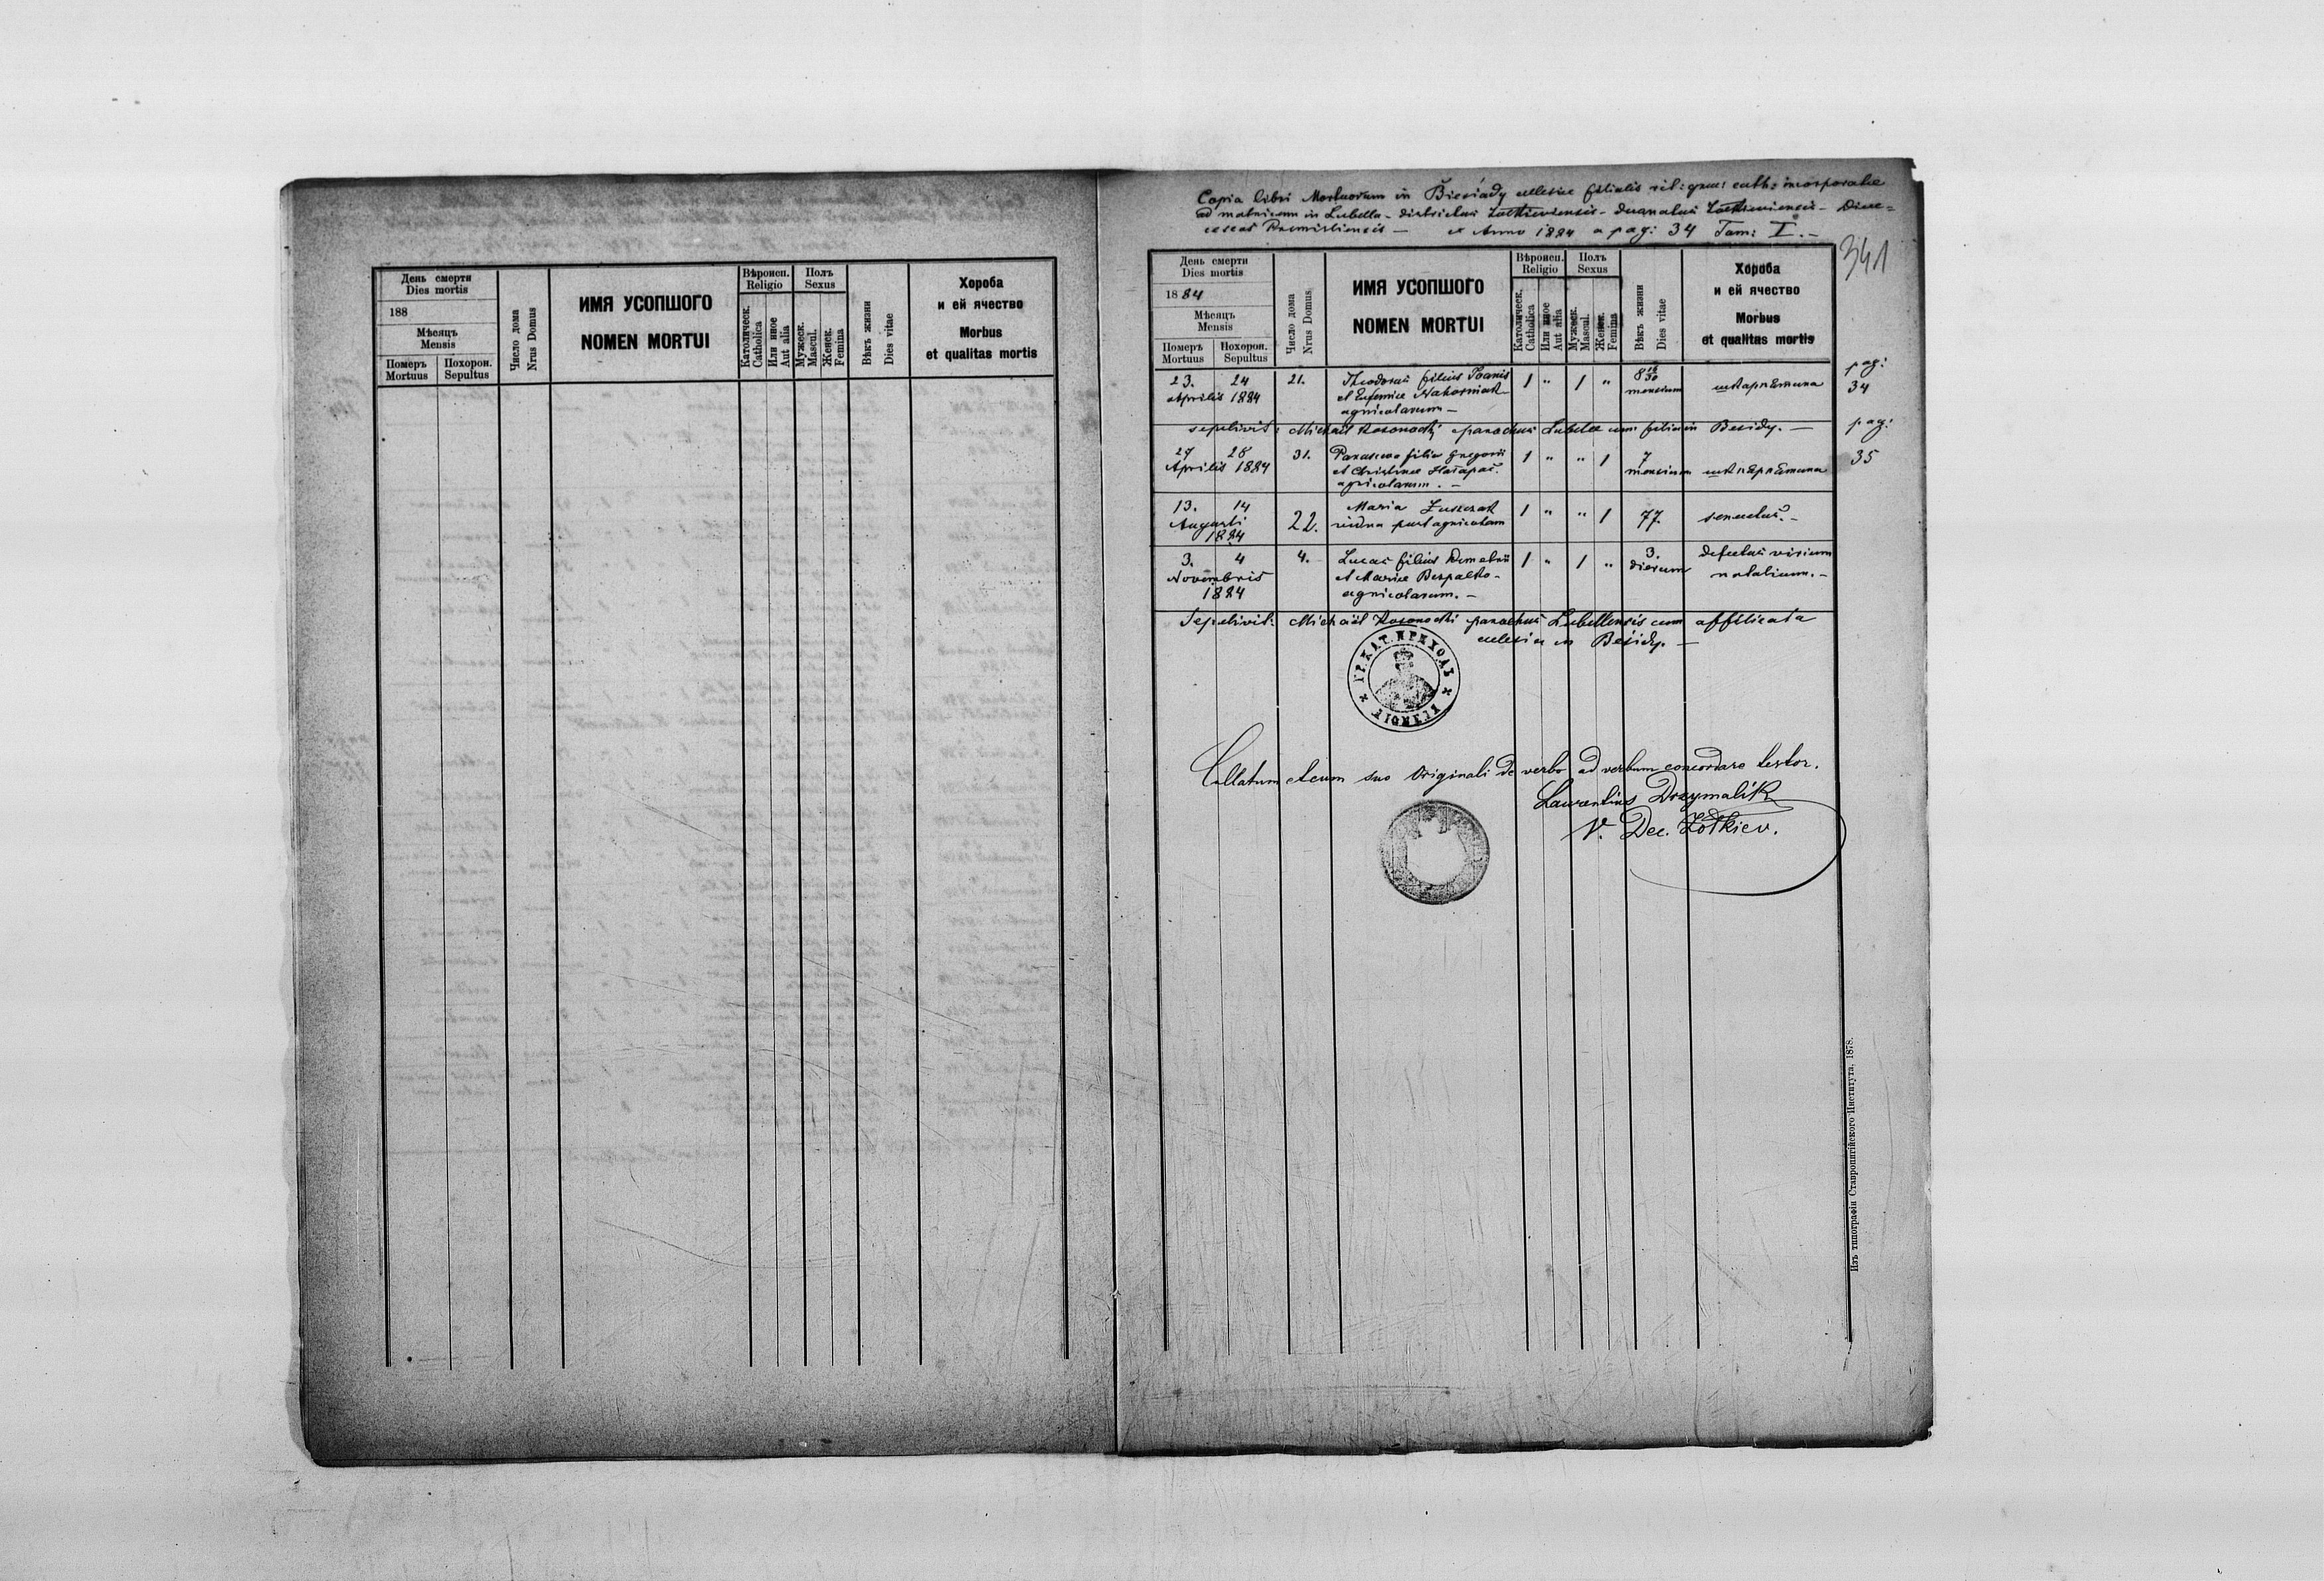 День смерти
Dies mortis
188
Мѣсяцъ
Mensis
Померъ
Mortuus
Похорон.
Sepultus
Число дома
Nrus Domus
ИМЯ УСОПШОГО
NOMEN MORTUI
Вѣроисп.
Religio
Католическ.
Catholica
Или иное
Aut alia
Полъ
Sexus
Мужеск.
Mascul.
Женск.
Femina
Вѣкъ жизни
Dies vitae
Хороба
и ей ячество
Morbus
et qualitas mortis
Copia libri Mortuorum in Biesiady ecclesiae filialis rit: graec: cath: incorporatae
ad matricem in Lubella - districtus Żołkieviensis - decanatus Żołkieviensis - Dioe=
ceseos Premisliensis — ex Anno 1884 a pag: 34 Tom: I. -
341
День смерти
Dies mortis
1884
Мѣсяцъ
Mensis
Померъ
Mortuus
Похорон.
Sepultus
Число дома
Nrus Domus
ИМЯ УСОПШОГО
NOMEN MORTUI
Вѣроисп.
Religio
Католическ.
Catholica
Или иное
Aut alia
Полъ
Sexus
Мужеск.
Mascul.
Женск.
Femina
Вѣкъ жизни
Dies vitae
Хороба
и ей ячество
Morbus
et qualitas mortis
23. 24 21. Theodorus filius Joanis 1 " 1 " 8 pag:
Aprilis 1884 et Eufemiae mensium шкарлятина 34
agricolarum —
sepelivit: Michael parochus Lubelae cum filia in Besidy. — pag:
27 28 31. Parascewa filia Gregorii 1 " " 1 7 35
Aprilis 1884 et Christinae mensium шкарлятина
agricolarum. —
13. 14 22. Maria 1 " " 1 77. senectus. -
Augusti vidua post agricolam
1884
3. 4 4. Lucas filius Demetrii 1 " 1 " 3. defectus virium
Novembris et Mariae Bezpalko - dierum natalium. -
1884 agricolarum. -
Sepelivit: Michael parochus Lubellensis cum affiliata
ecclesia in Besidy. —
ГР. КАТ. ПРИХОДЪ
Collatum cum suo Originali de verbo ad verbum concordare testor.
Laurentius Drzymalik
V. Dec. Żołkiew.
Изъ типографіи Ставропигійского Института, 1878.